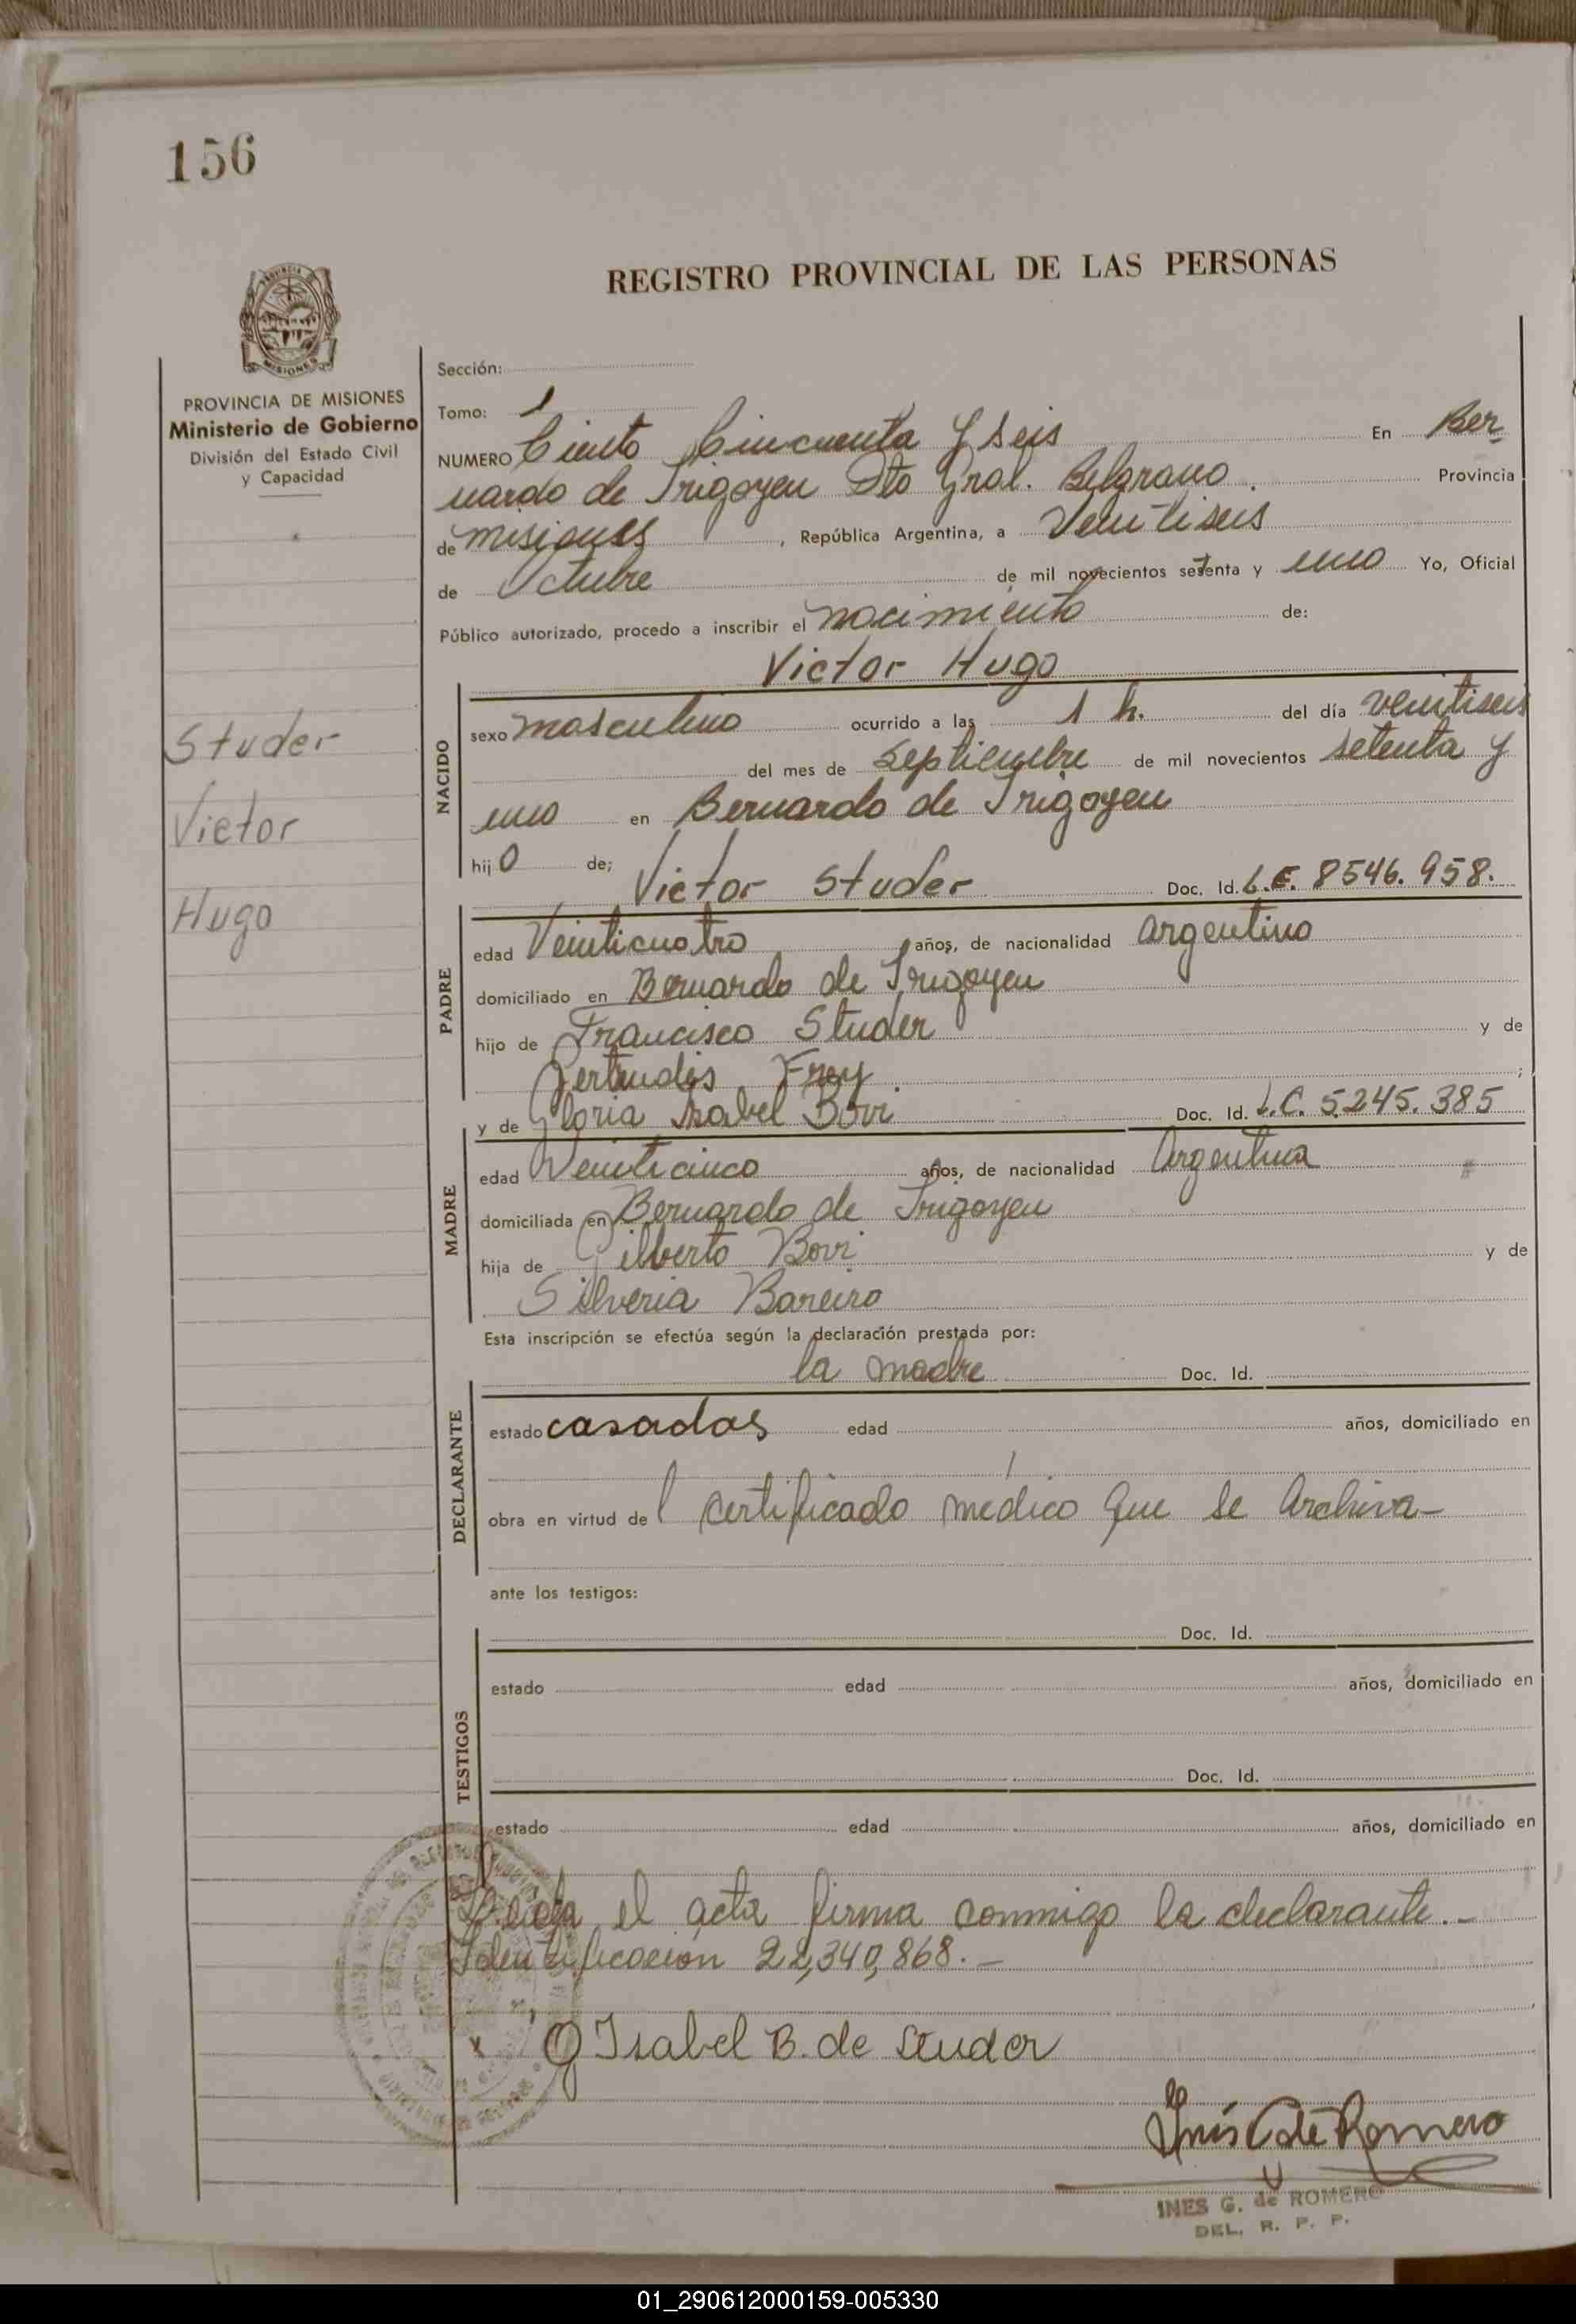 156
REGISTRO PROVINCIAL DE LAS PERSONAS
PROVINCIA
MISIONES
PROVINCIA DE MISIONES
Ministerio de Gobierno
División del Estado Civil
y Capacidad
Studer
Victor
Hugo
Sección:
Tomo: 1
NUMERO Ciento Cincuenta y seis En Ber
nardo de Irigoyen Dto Gral. Belgrano. Provincia
de misiones, República Argentina, a Veintiseis
de Octubre de mil novecientos setenta y uno Yo, Oficial
Público autorizado, procedo a inscribir el nacimiento de:
Victor Hugo
NACIDO
sexo masculino ocurrido a las 1 h. del día veintiseis
del mes de septiembre de mil novecientos setenta y
uno en Bernardo de Irigoyen
hijo de;
Victor Studer Doc. Id. L.E. 8546.958.
PADRE
edad Veinticuatro años, de nacionalidad argentino
domiciliado en Bernardo de Irigoyen
hijo de Francisco Studer y de
Gertrudis Frey ;
y de Gloria Isabel Bovi Doc. Id. L.C. 5.245.385
MADRE
edad Veinticinco años, de nacionalidad Argentina
domiciliada en Bernardo de Irigoyen
hija de Gilberto Bovi y de
Silveria Bareiro
Esta inscripción se efectúa según la declaración prestada por:
la madre Doc. Id.
DECLARANTE
estado casadas edad años, domiciliado en
obra en virtud del certificado médico que se Archiva-
ante los testigos:
Doc. Id.
TESTIGOS
estado edad años, domiciliado en
Doc. Id.
estado edad años, domiciliado en
Leída el acta firma conmigo la declarante.-
Identificación 22,340,868.-
x G Isabel B. de Studer
Inés G de Romero
INES G. de ROMERO
DEL. R. P. P.
01_290612000159-005330